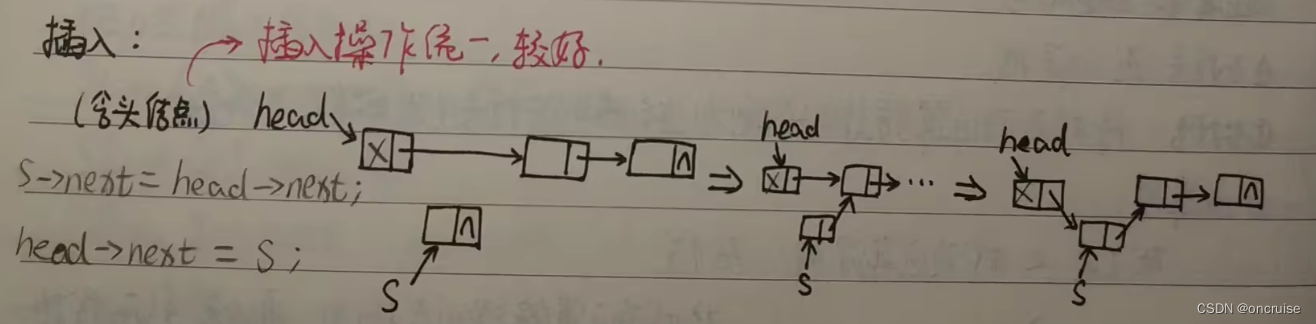 插入：
→ 插入操作统一，较好.
(含头结点) head
head
head
X
X
X
S→next = head→next;
...
head→next = S;
S
S
S
CSDN @oncruise